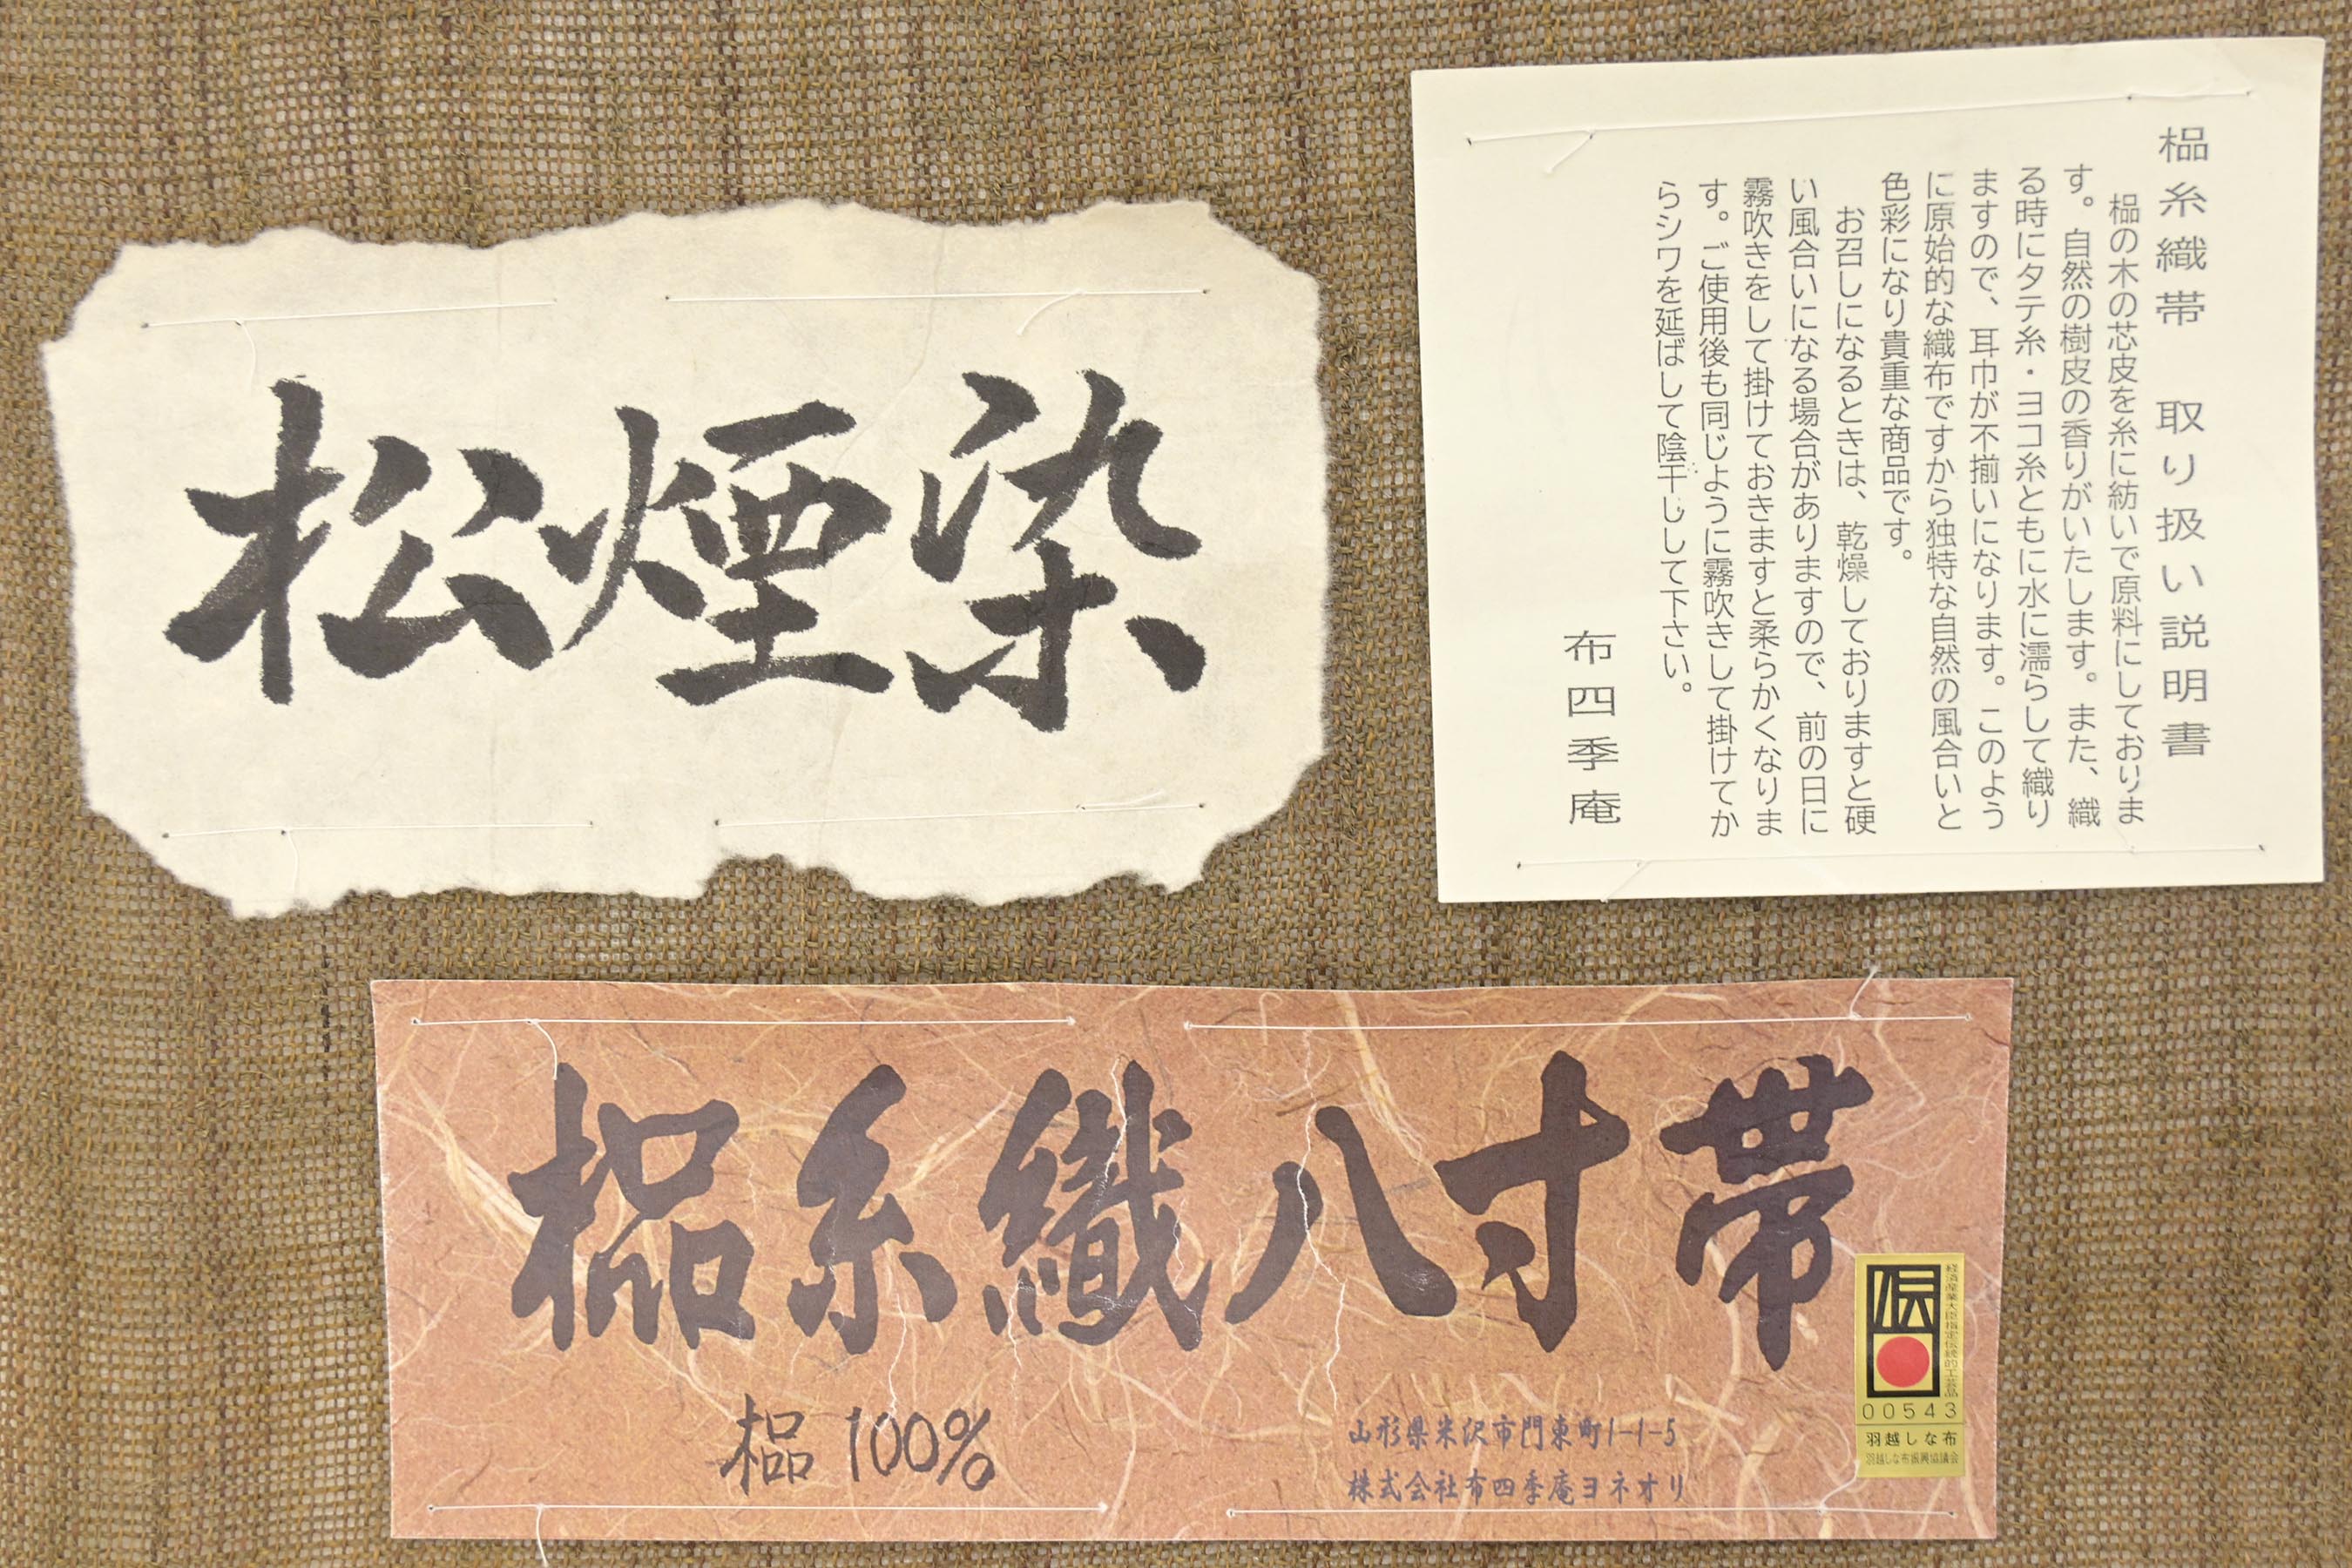 松煙染
榀糸織帯　取り扱い説明書
榀の木の芯皮を糸に紡いで原料にしておりま
す。自然の樹皮の香りがいたします。また、織
る時にタテ糸・ヨコ糸ともに水に濡らして織り
ますので、耳巾が不揃いになります。このよう
に原始的な織布ですから独特な自然の風合いと
色彩になり貴重な商品です。
お召しになるときは、乾燥しておりますと硬
い風合いになる場合がありますので、前の日に
霧吹きをして掛けておきますと柔らかくなりま
す。ご使用後も同じように霧吹きして掛けてか
らシワを延ばして陰干しして下さい。
布四季庵
榀糸織八寸帯
榀 100%
山形県米沢市門東町1-1-5
株式会社布四季庵ヨネオリ
伝
経済産業大臣指定伝統的工芸品
00543
羽越しな布
羽越しな布振興協議会